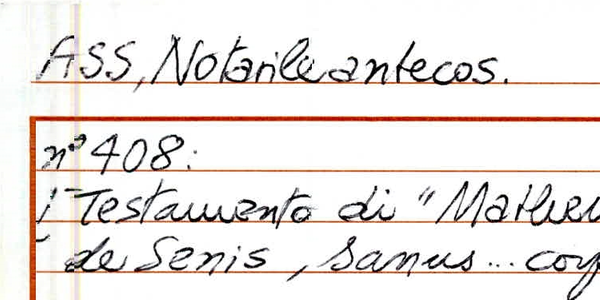 ASS, Notarile antecos.
n° 408:
Testamento di "Matheu
de Senis, sanus... cor